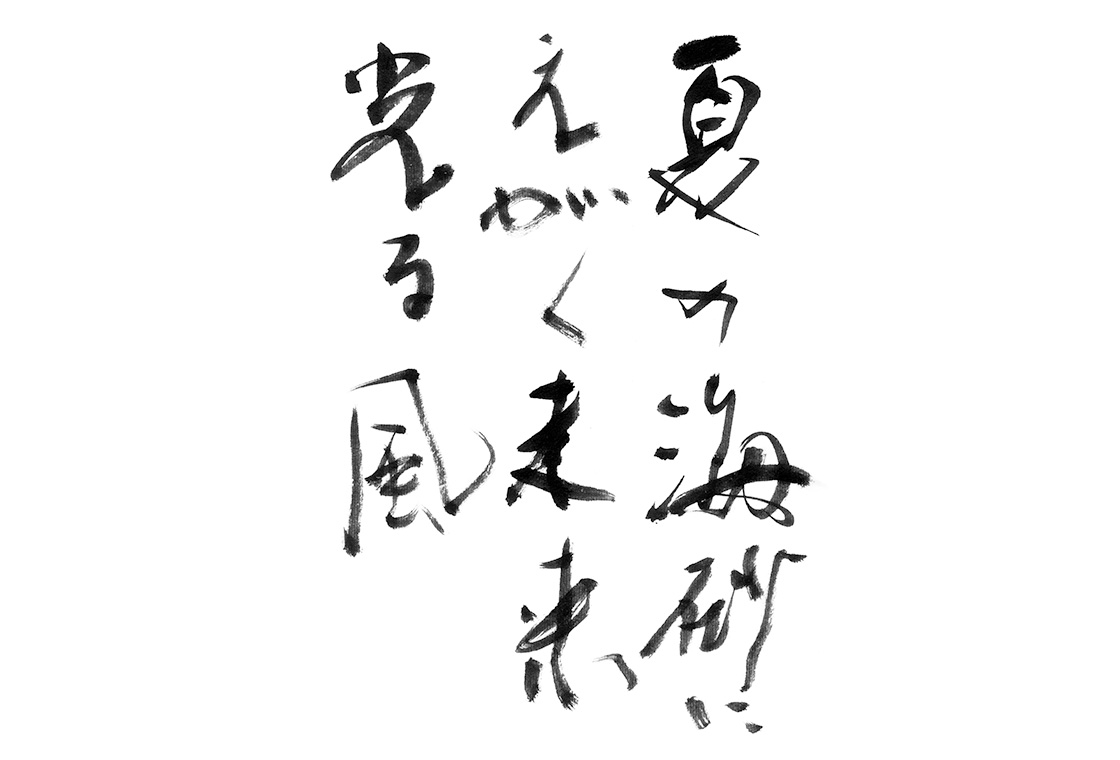 夏の海砂に
えがく未来へ
光る風